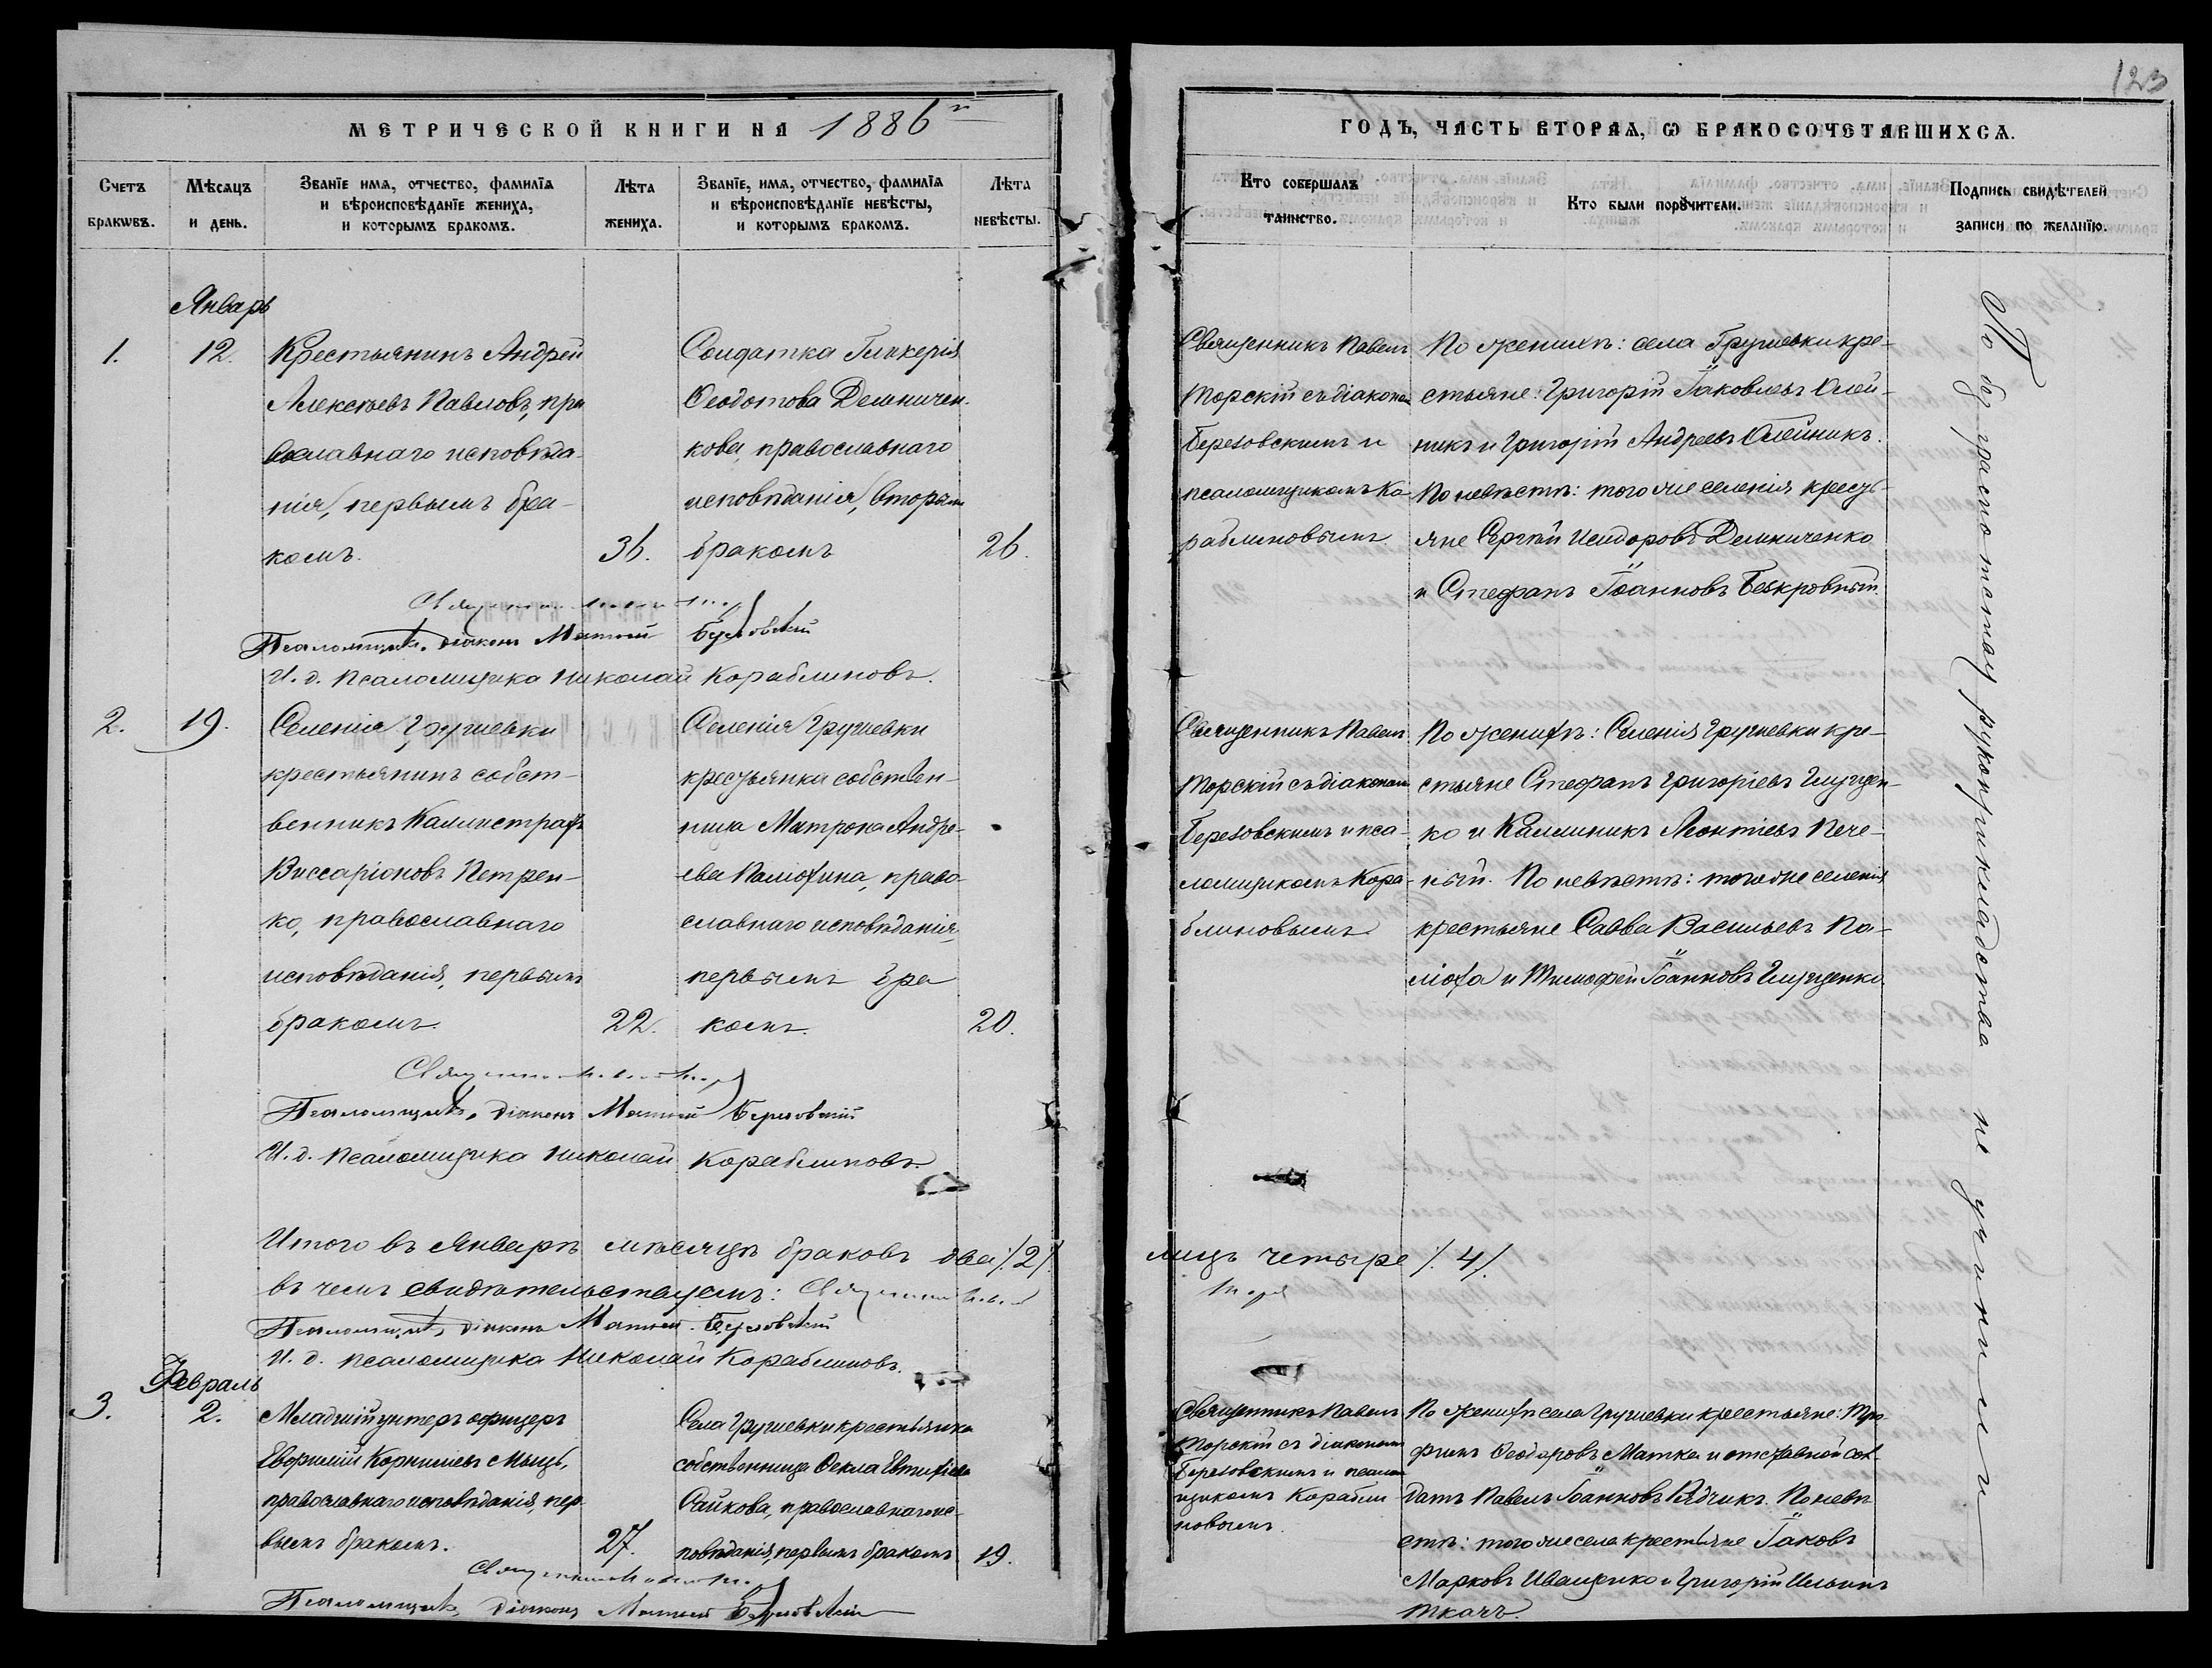 123
МЕТРИЧЕСКОЙ КНИГИ НА 1886й
ГОДЪ, ЧАСТЬ ВТОРАЯ, Ѡ БРАКОСОЧЕТАВШИХСЯ.
Счетъ бракѡвъ.
Мѣсяцъ и день.
Званїе имя, отчество, фамилїя
и вѣроисповѣданїе жениха,
и которымъ бракомъ.
Лѣта жениха.
Званїе, имя, отчество, фамилїя
и вѣроисповѣданїе невѣсты,
и которымъ бракомъ.
Лѣта невѣсты.
Кто совершалъ таинство.
Кто были порꙋчители.
Подпись свидѣтелей
записи по желанїю.
Январь
1.
12.
Крестьянинъ Андрей
Алексѣевъ Павловъ, пра
вославнаго исповѣда-
нія, первымъ бра-
комъ.
36.
Солдатка Гликерія
Ѳеодотова Демничен-
кова, православнаго
исповѣданія, вторымъ
бракомъ
26.
Священникъ Павелъ
Торскій съ діакономъ
Березовскимъ и
псаломщикомъ Ко-
раблиновымъ
По женихѣ: села Грушевки кре-
стьяне: Григорій Іаковлевъ Олей-
никъ и Григорій Андреевъ Олейникъ.
По невѣстѣ: того же селенія кресть-
яне Сергѣй Исидоровъ Демниченко
и Стефанъ Іоанновъ Безкровный.
Псаломщикъ, діаконъ Матѳей Березовскій
И. д. псаломщика Николай Кораблиновъ.
2.
19.
Селенія Грушевки
крестьянинъ собст-
венникъ Каллистратъ
Виссаріоновъ Петрен-
ко, православнаго
исповѣданія, первымъ
бракомъ.
22.
Селенія Грушевки
крестьянка собствен-
ница Матрона Андре-
ева Палюхина, право-
славнаго исповѣданія,
первымъ бра
комъ.
20.
Священникъ Павелъ
Торскій съ діакономъ
Березовскимъ и пса-
ломщикомъ Кора-
блиновымъ
По женихѣ: Селенія Грушевки кре-
стьяне Стефанъ Григоріевъ Глущен-
ко и Каллиникъ Леонтіевъ Пече-
ный. По невѣстѣ: того же селенія
крестьяне Савва Васильевъ Па-
люха и Тимофей Іоанновъ Глущенко.
Псаломщикъ, діаконъ Матѳей Березовскій
И. д. псаломщика Николай Кораблиновъ.
Итого въ Январѣ мѣсяцѣ браковъ два /.2/. лицъ четыре /.4/.
въ чемъ свидѣтельствуемъ: Священникъ Павелъ Торскій
Псаломщикъ, діаконъ Матѳей Березовскій
И. д. псаломщика Николай Кораблиновъ.
Февраль
3.
2.
Младшій унтеръ офицеръ
Евфимій Корниліевъ Мышь,
православнаго исповѣданія, пер-
вымъ бракомъ.
27.
Села Грушевки крестьянка
собственница Ѳекла Евтихіева
Сайкова, православнаго ис-
повѣданія, первымъ бракомъ
19.
Священникъ Павелъ
Торскій съ діакономъ
Березовскимъ и псалом
щикомъ Корабли
новымъ.
По женихѣ села Грушевки крестьяне: Тро-
фимъ Ѳеодоровъ Матка и отставной сол-
датъ Павелъ Іоанновъ Рядчикъ. По невѣ
стѣ: того же села крестьяне Іаковъ
Марковъ Иващенко и Григорій Ильинъ
Ткачъ.
Псаломщикъ, діаконъ Матѳей Березовскій
По безграмотству рукоприкладства не учинили